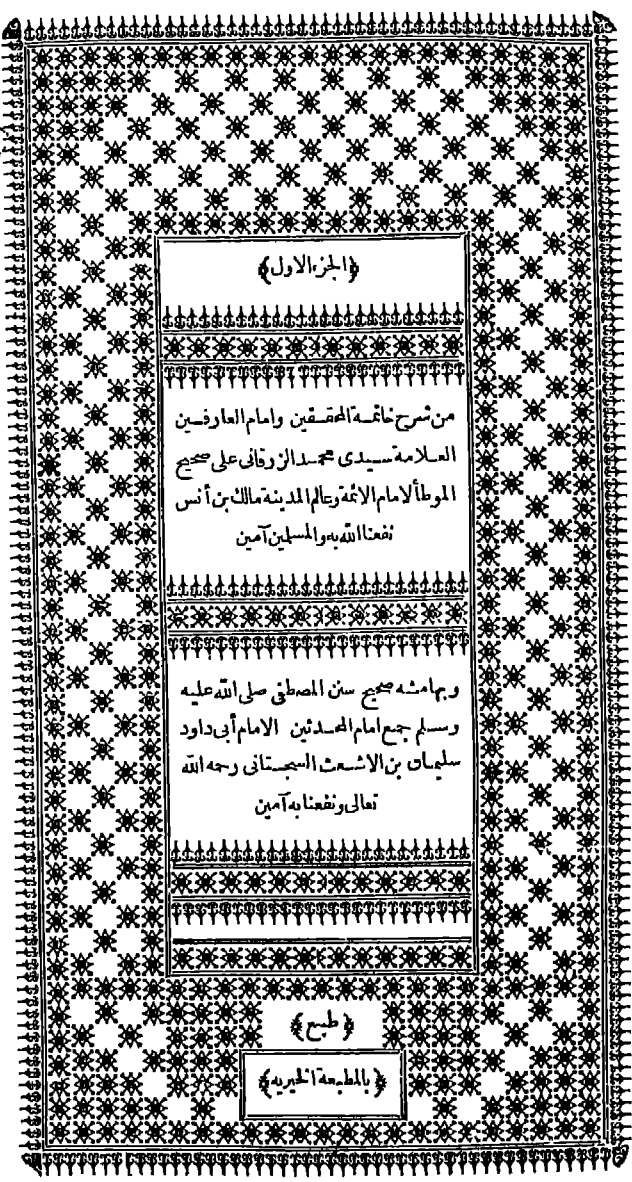 ﴿الجزء الاول﴾
من شرح خاتمـة المحقـقين وامام العارفـين
العـلامة سـيدى محمـد الزرقانى على صحيح
الموطأ لامام الائمة وعالم المدينة مالك بن أنس
نفعنا الله به والمسلمين آمين
وبهامشه صحيح سنن المصطفى صلى الله عليه
وسـلم جمع امام المحـدثين الامام أبى داود
سليمان بن الاشـعث السجستانى رحمه الله
تعالى ونفعنا به آمين
﴿طبع﴾
﴿بالمطبعة الخيرية﴾